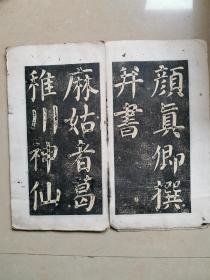 顔真卿撰
并書
麻姑者葛
稚川神仙